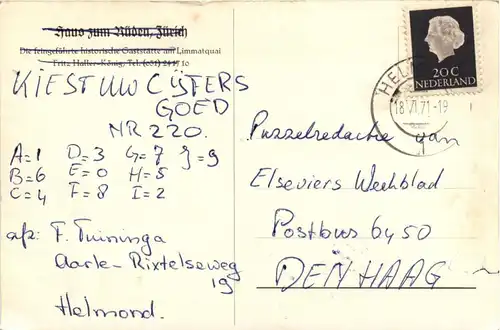 Haus zum Rüden, Zürich
Die feingeführte historische Gaststätte am Limmatquai
Fritz Haller-König, Tel. (051)
KIEST UW CIJFERS
GOED
NR 220.
A=1 D=3 G=7 J=9
B=6 E=0 H=5
C=4 F=8 I=2
afz: F. Tuininga
Aarle-Rixtelseweg
19
Helmond.
20 C
NEDERLAND
18 VI 71-19
Puzzelredactie van
Elseviers Weekblad
Postbus 6450
DEN HAAG